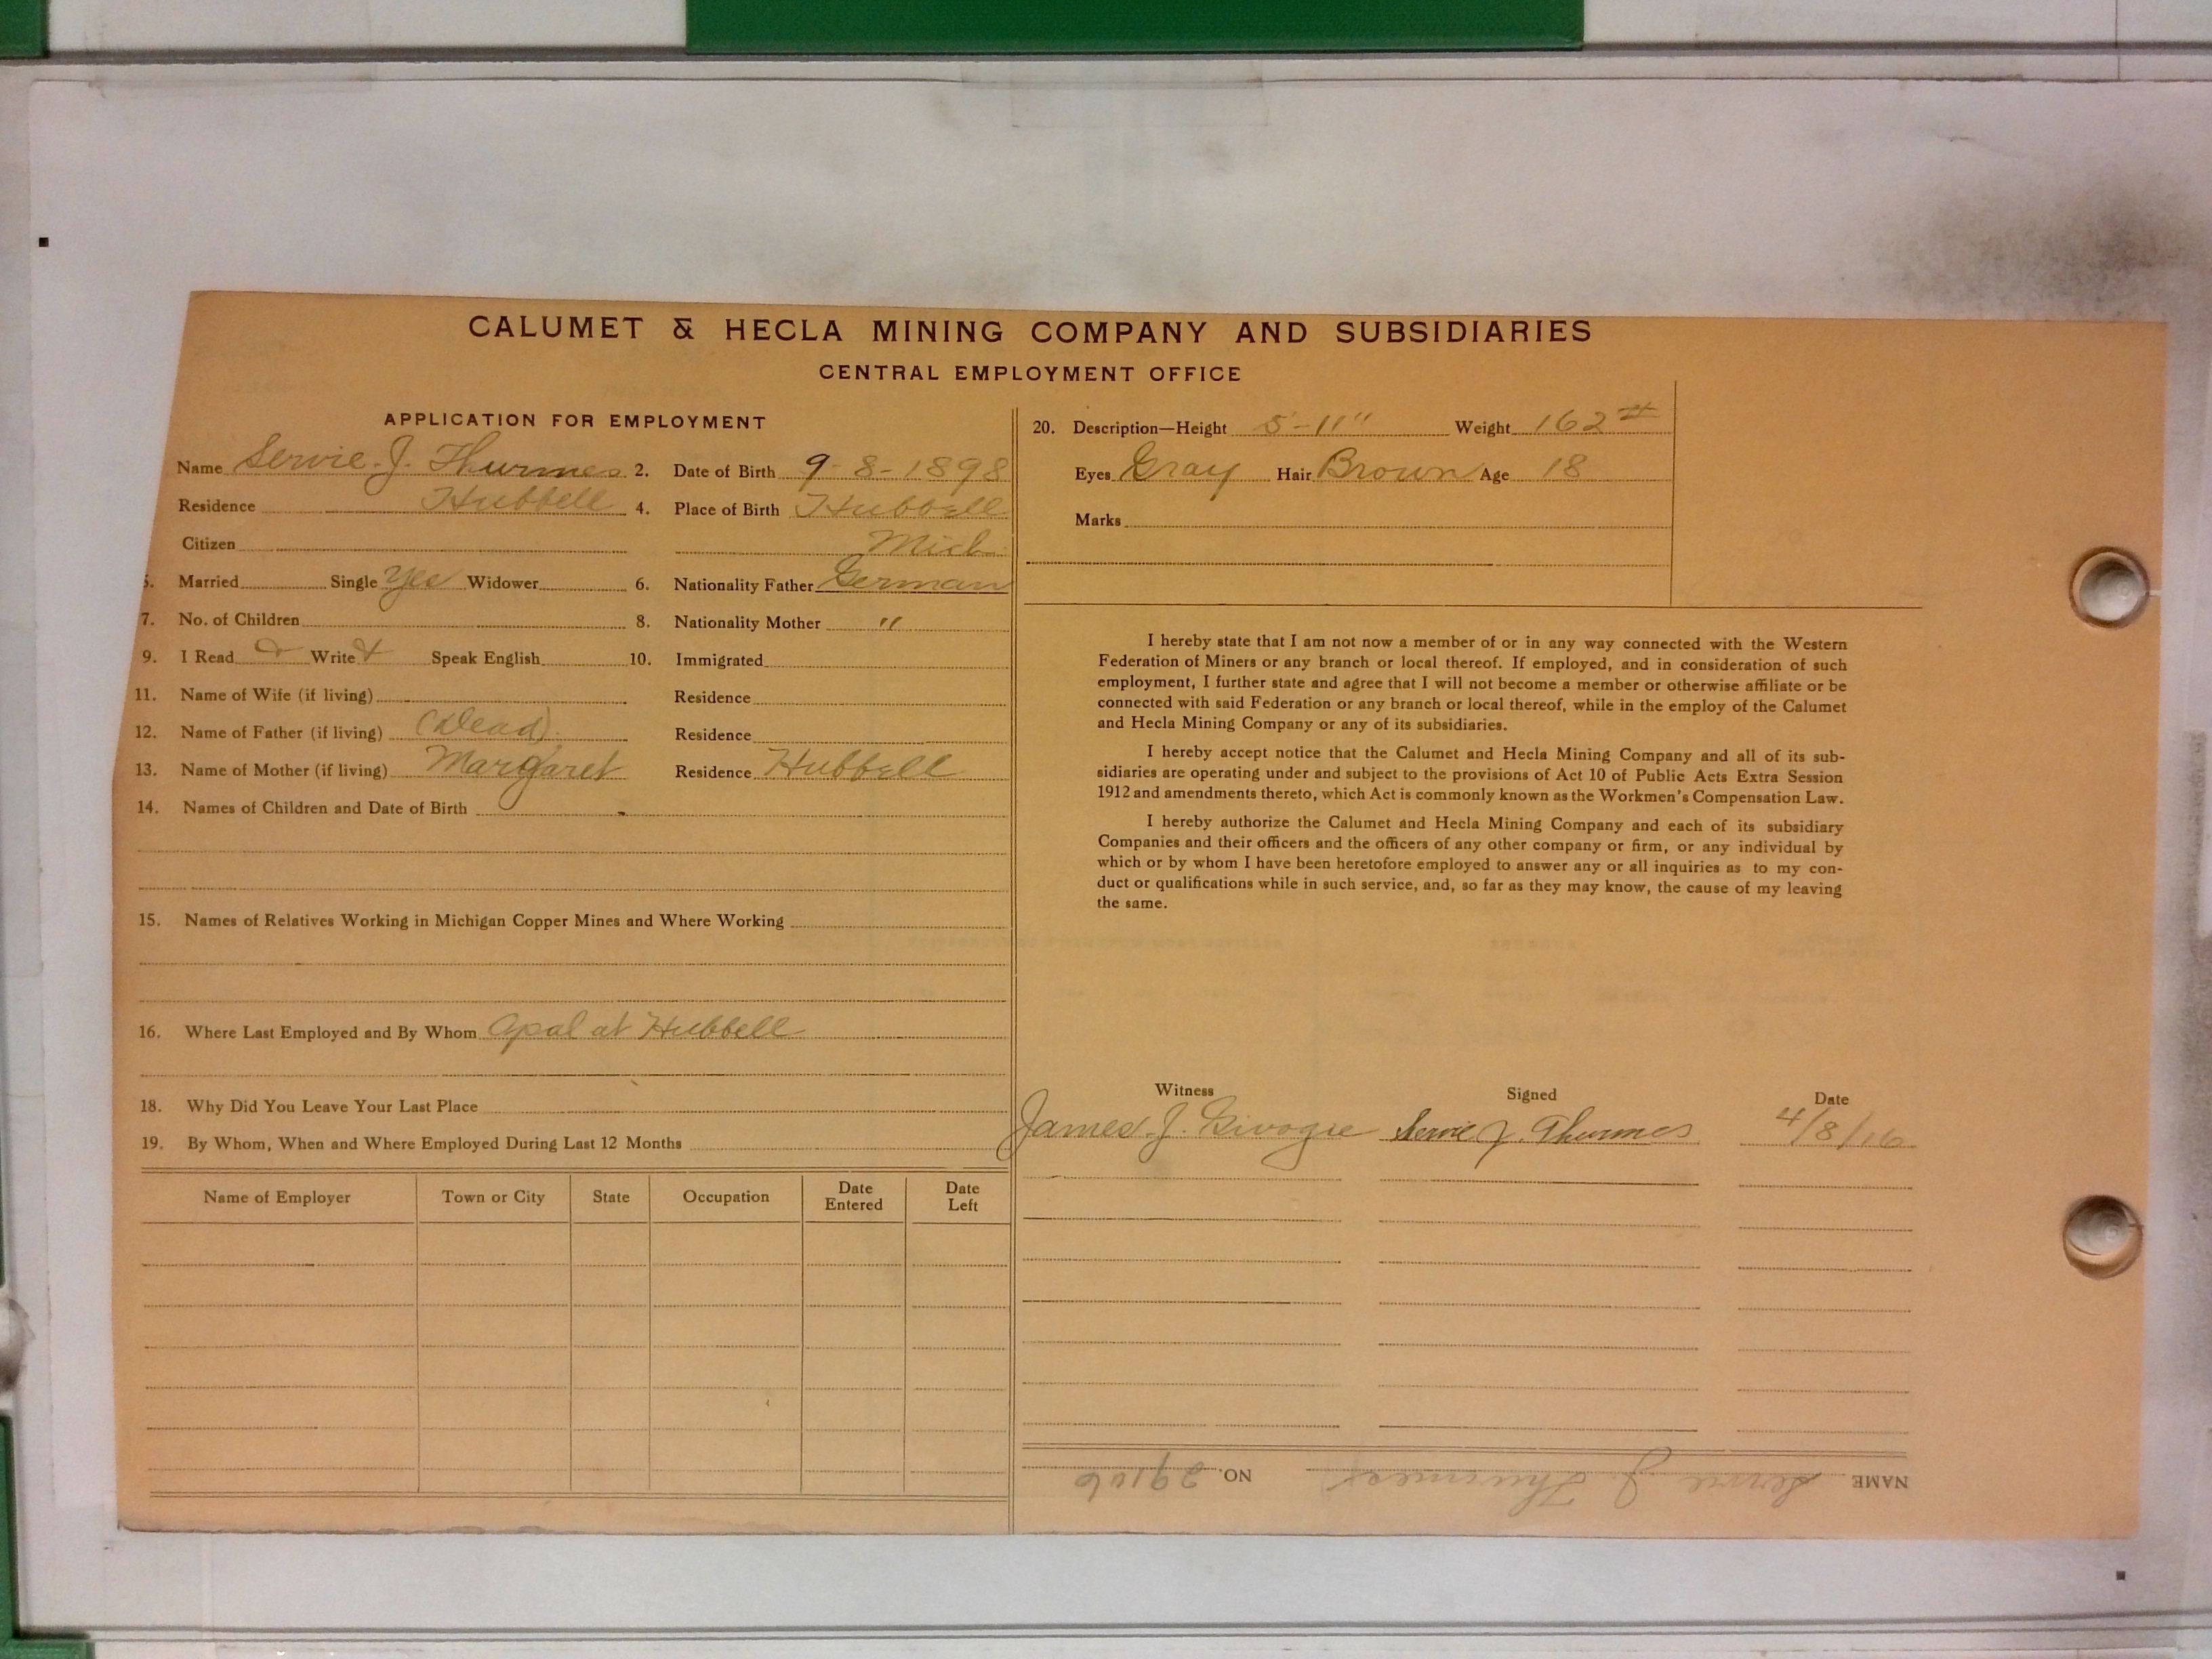 CALUMET & HECLA MINING COMPANY AND SUBSIDIARIES
CENTRAL EMPLOYMENT OFFICE
APPLICATION FOR EMPLOYMENT
Name Servie J. Thurmes 2. Date of Birth 9-8-1898
Residence Hubbell 4. Place of Birth Hubbell
Citizen Mich.
5. Married Single Yes Widower 6. Nationality Father German
7. No. of Children 8. Nationality Mother "
9. I Read Write Speak English 10. Immigrated
11. Name of Wife (if living) Residence
12. Name of Father (if living) (Dead) Residence
13. Name of Mother (if living) Margaret Residence Hubbell
14. Names of Children and Date of Birth
15. Names of Relatives Working in Michigan Copper Mines and Where Working
16. Where Last Employed and By Whom at Hubbell
18. Why Did You Leave Your Last Place
19. By Whom, When and Where Employed During Last 12 Months
Name of Employer Town or City State Occupation Date Entered Date Left
20. Description—Height 5-11" Weight 162 #
Eyes Gray Hair Brown Age 18
Marks
I hereby state that I am not now a member of or in any way connected with the Western
Federation of Miners or any branch or local thereof. If employed, and in consideration of such
employment, I further state and agree that I will not become a member or otherwise affiliate or be
connected with said Federation or any branch or local thereof, while in the employ of the Calumet
and Hecla Mining Company or any of its subsidiaries.
I hereby accept notice that the Calumet and Hecla Mining Company and all of its sub-
sidiaries are operating under and subject to the provisions of Act 10 of Public Acts Extra Session
1912 and amendments thereto, which Act is commonly known as the Workmen's Compensation Law.
I hereby authorize the Calumet and Hecla Mining Company and each of its subsidiary
Companies and their officers and the officers of any other company or firm, or any individual by
which or by whom I have been heretofore employed to answer any or all inquiries as to my con-
duct or qualifications while in such service, and, so far as they may know, the cause of my leaving
the same.
Witness Signed Date
James J. Servie J. Thurmes 4/8/16
NAME Servie J. Thurmes NO. 29106